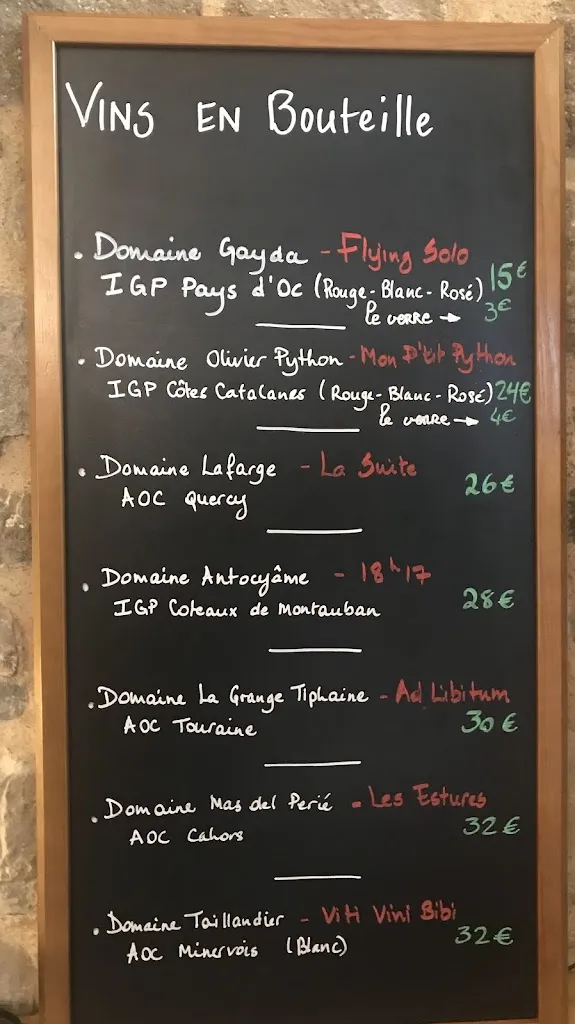 VINS EN Bouteille
. Domaine Gayda - Flying Solo
IGP Pays d'Oc (Rouge-Blanc-Rosé) 15€
le verre → 3€
. Domaine Olivier Python - Mon P'tit Python
IGP Côtes Catalanes (Rouge-Blanc-Rosé) 24€
le verre → 4€
. Domaine Lafarge - La Suite
AOC Quercy 26€
. Domaine Antocyâme - 18h17
IGP Coteaux de Montauban 28€
. Domaine La Grange Tiphaine - Ad Libitum
AOC Touraine 30€
. Domaine Mas del Perié - Les Estures
AOC Cahors 32€
. Domaine Taillandier - Viti Vini Bibi
AOC Minervois (Blanc) 32€